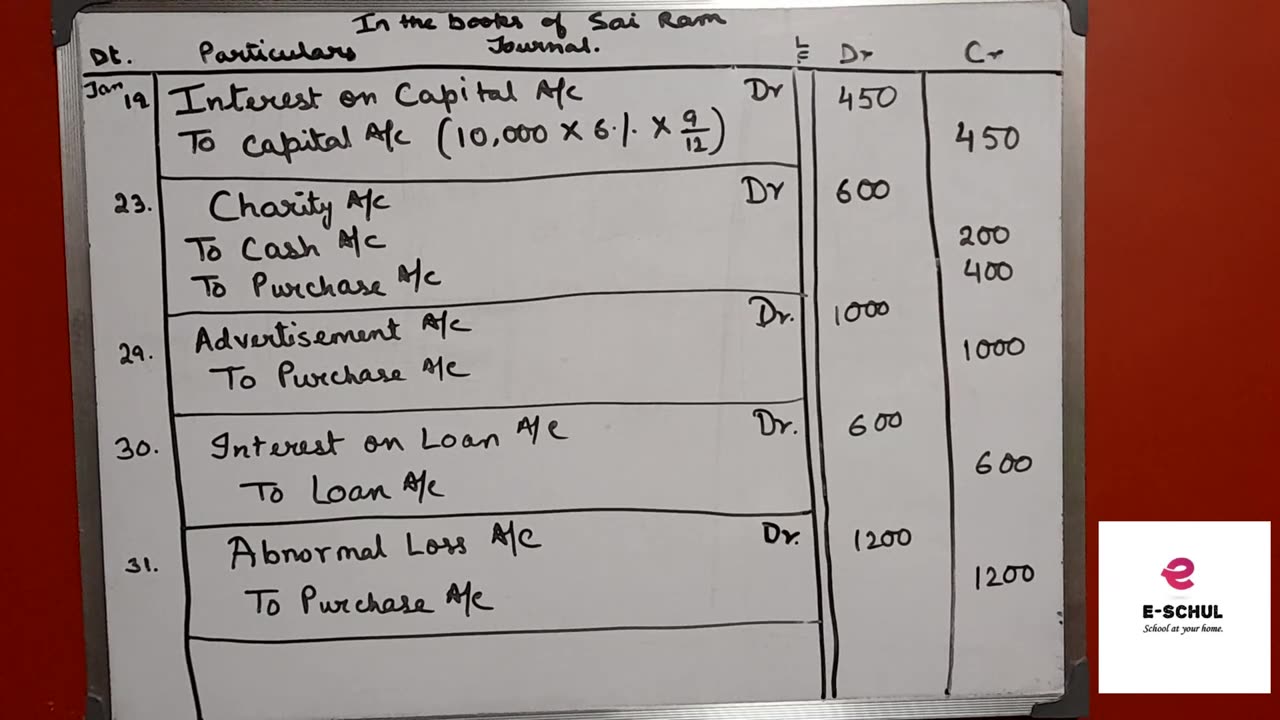 In the books of Sai Ram
Journal.
Dt. Particulars L.F Dr Cr
Jan 19 Interest on Capital A/c Dr 450
To Capital A/c (10,000 × 6% × 9/12) 450
23. Charity A/c Dr 600
To Cash A/c 200
To Purchase A/c 400
29. Advertisement A/c Dr. 1000
To Purchase A/c 1000
30. Interest on Loan A/c Dr. 600
To Loan A/c 600
31. Abnormal Loss A/c Dr. 1200
To Purchase A/c 1200
E-SCHUL
School at your home.